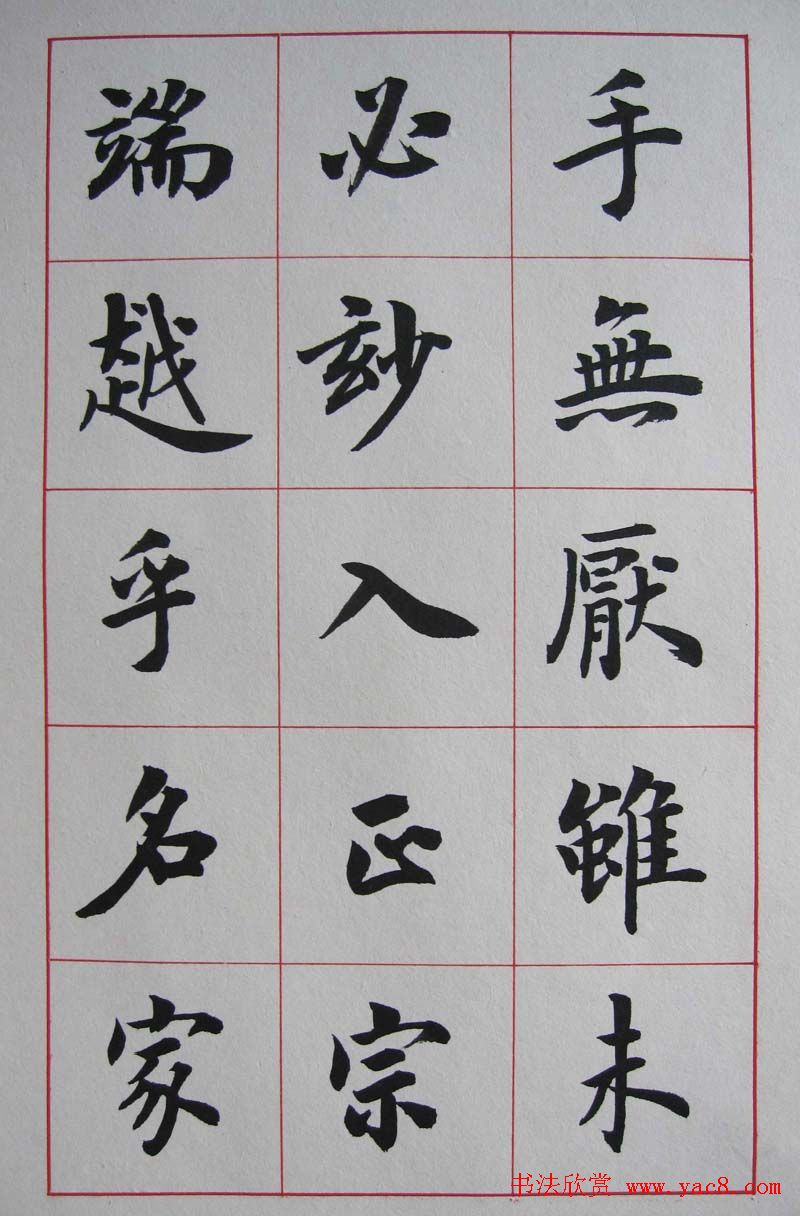 手無厭雖未
必玅入正宗
端越乎名家
书法欣赏 www.yac8.com